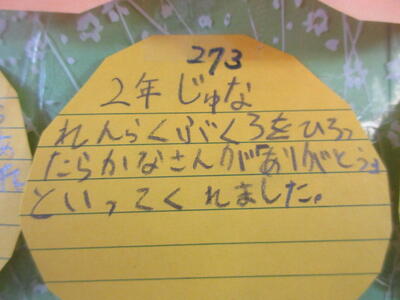 273
2年じゅな
れんらくぶくろをひろっ
たらかなさんが「ありがとう」
といってくれました。